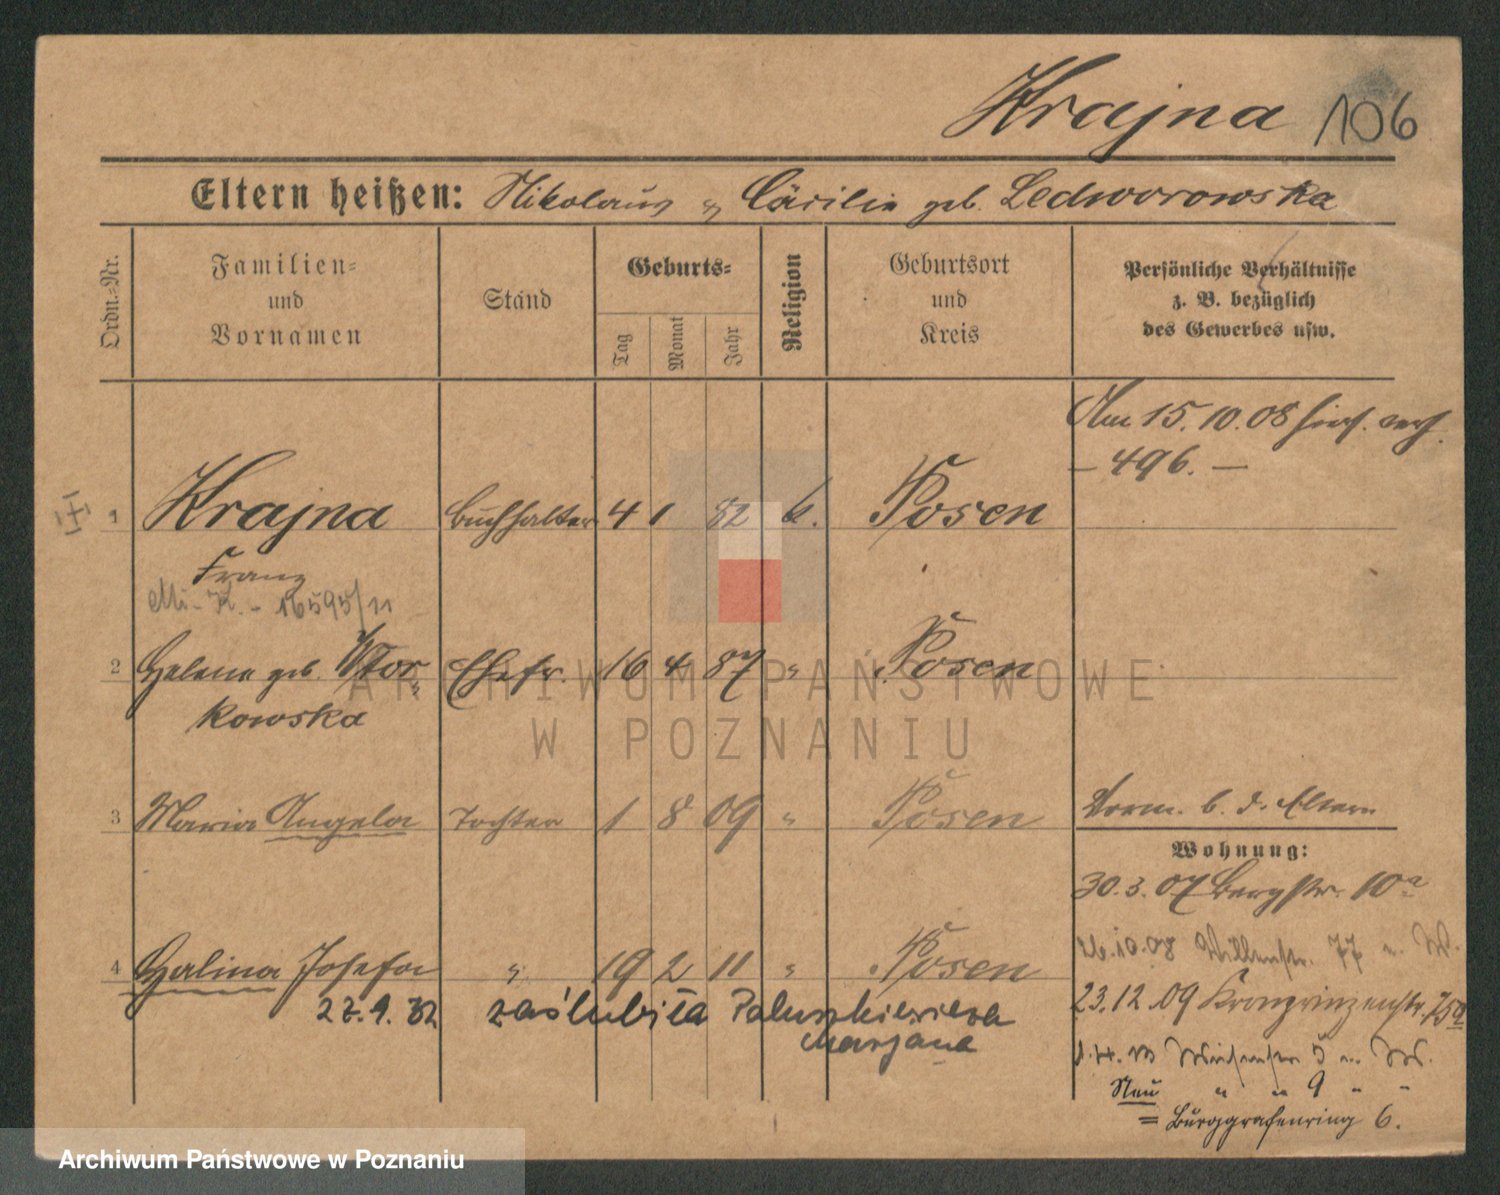 Krajna 106
Eltern heißen: Nikolaus u Cäcilie geb. Ledworowska
Ordn.-Nr.
Familien-
und
Vornamen
Stand
Geburts-
Tag
Monat
Jahr
Religion
Geburtsort
und
Kreis
Persönliche Verhältnisse
z. B. bezüglich
des Gewerbes usw.
Am 15. 10. 08 hier verh.
– 496. –
1 Krajna Buchhalter 4 1 82 k. Posen
Franz
16595/11
2 Helene geb. Wtor- Ehefr. 16 4 87 " Posen
kowska
3 Maria Angela Tochter 1 8 09 " Posen
b. d. Eltern
Wohnung:
30. 3. 07 Bergstr. 10a
4 Halina Josefa " 19 2 11 " Posen
10. 08 77 u. W.
27. 9. 32 zaślubiła Paluszkiewicza
Marjana
23. 12. 09 Kronprinzenstr. 75a
5 u. W.
Neu " " 9 " "
= Burggrafenring 6.
ARCHIWUM PAŃSTWOWE
W POZNANIU
Archiwum Państwowe w Poznaniu